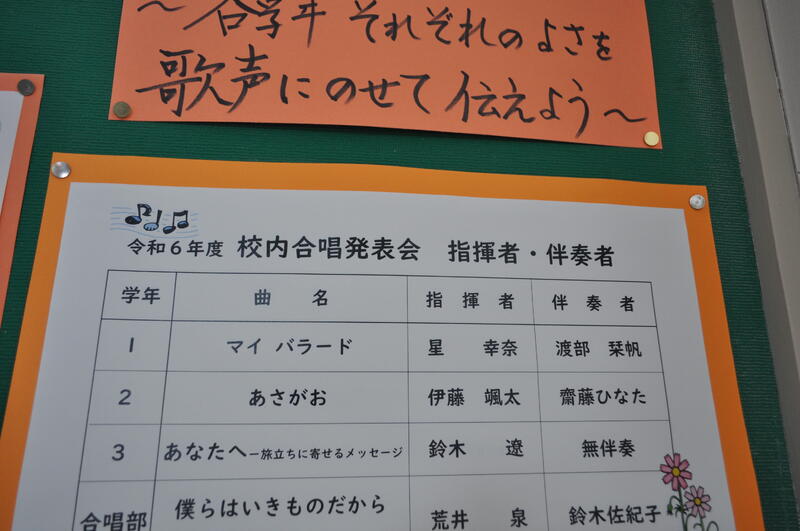 ～各学年 それぞれのよさを
歌声にのせて伝えよう～
令和6年度 校内合唱発表会 指揮者・伴奏者
学年 曲名 指揮者 伴奏者
1 マイ バラード 星 幸奈 渡部 栞帆
2 あさがお 伊藤 颯太 齋藤ひなた
3 あなたへ－旅立ちに寄せるメッセージ 鈴木 遼 無伴奏
合唱部 僕らはいきものだから 荒井 泉 鈴木佐紀子